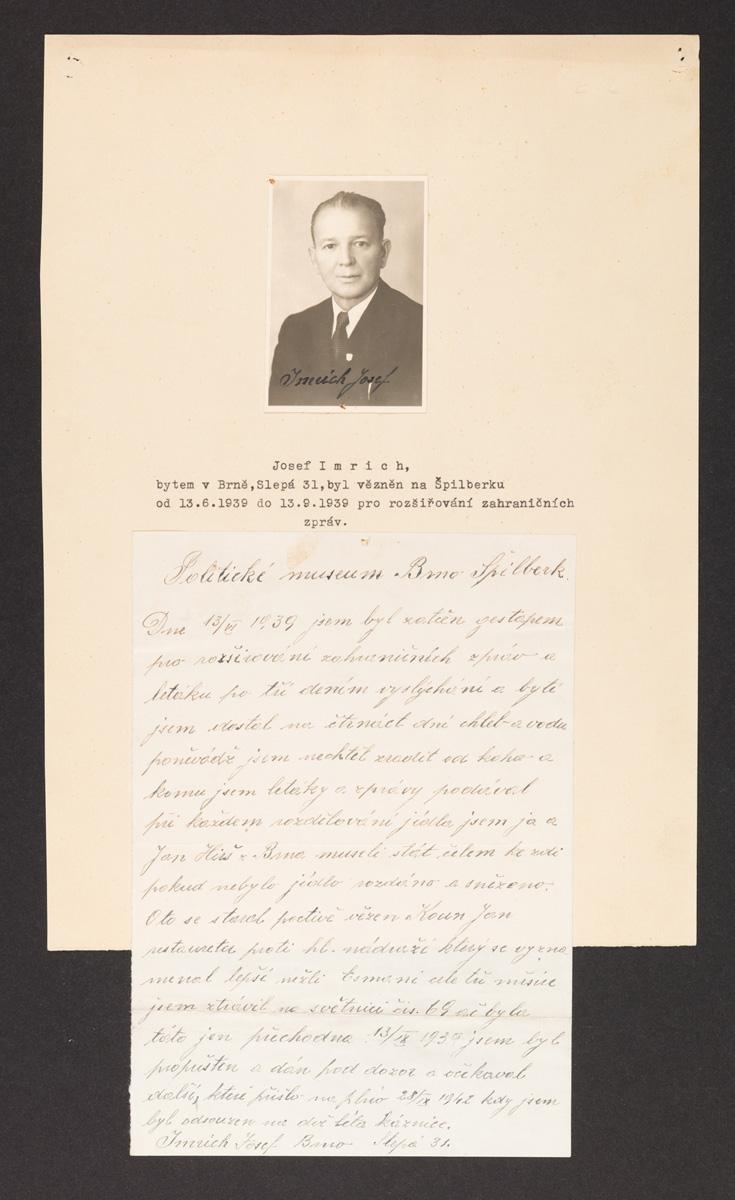 Imrich Josef
Josef I m r i c h,
bytem v Brně,Slepá 31,byl vězněn na Špilberku
od 13.6.1939 do 13.9.1939 pro rozšiřování zahraničních
zpráv.
Politické museum Brno Špilberk.
Dne 13/VI 1939 jsem byl zatčen gestapem
pro rozširování zahraničních zpráv a
letáku po tří dením vyslýchání a bytí
jsem dostal na čtrnáct dní chleb a vodu
poněvádž jsem nechtěl zradit od koho a
komu jsem letáky a zprávy podával
při každém rozdělování jídla jsem ja a
Jan Hirš z Brna museli stát čelem ke zdi
pokud nebylo jídlo rozdáno a snězeno.
O to se staral poctivě vězen Koun Jan
restaurater proti hl. nádraží který se vyzna
menal lepší nežli Esmani ale tři měsíce
jsem ztrávil na světnici čís. 69 ač byla
tato jen přechodna 13/IX 1939 jsem byl
propuštěn a dán pod dozor a očekával
další, které přišlo na plno 28/IX 1942 kdy jsem
byl odsouzen na dvě léta káznice.
Imrich Josef Brno Slepá 31.